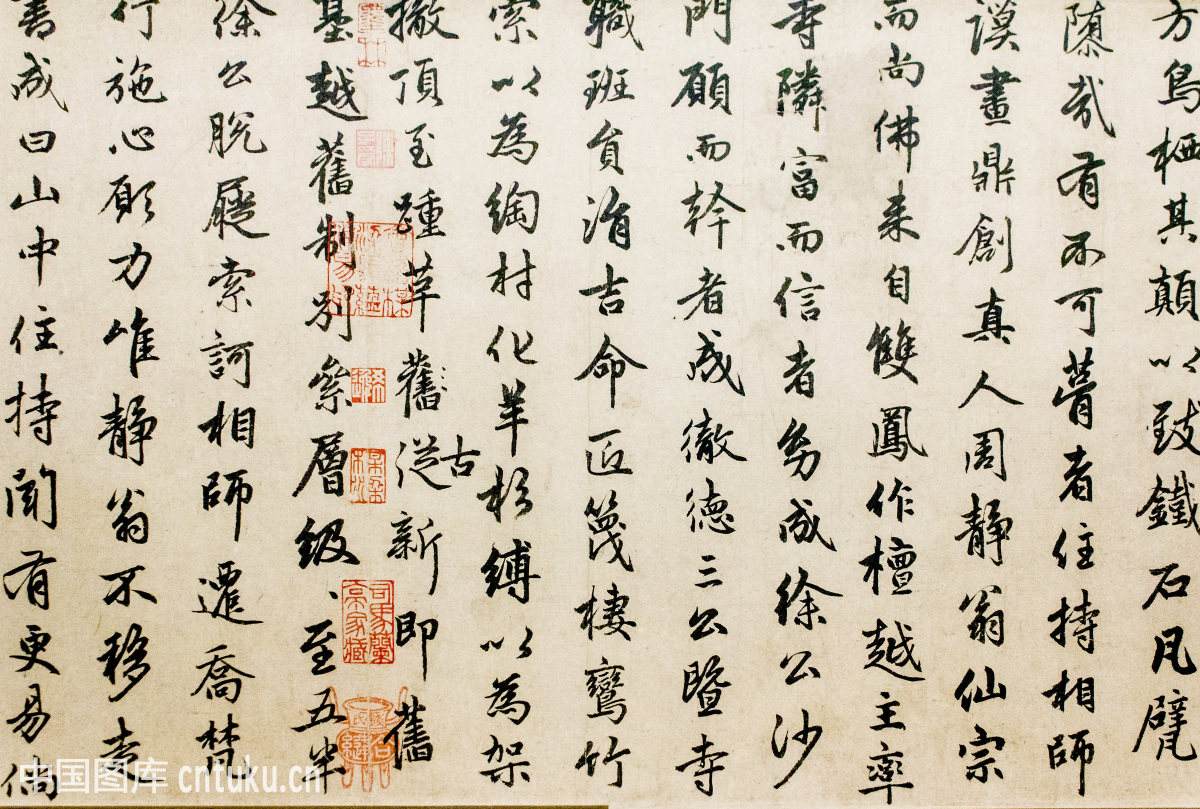 方鳥栖其顛以致鐵石凡甓
隳哉有不可瞢者住持相師
謨畫鼎創真人周靜翁仙宗
而尚佛来自雙鳳作檀越主率
寺隣富而信者勇成徐公沙
門願而幹者成徹德三公暨寺
職班貟涓吉命匠篾棲鸞竹
索以為綯村化羊杉縛以為架
撤頂至踵革舊從古新即舊
基越舊制別絫層級、至五半
徐公脫屣索訶相師遷喬梵
行施心願力唯靜翁不移書
書成曰山中住持聞有更易倘
司馬蘭亭家藏
中国图库 cntuku.cn